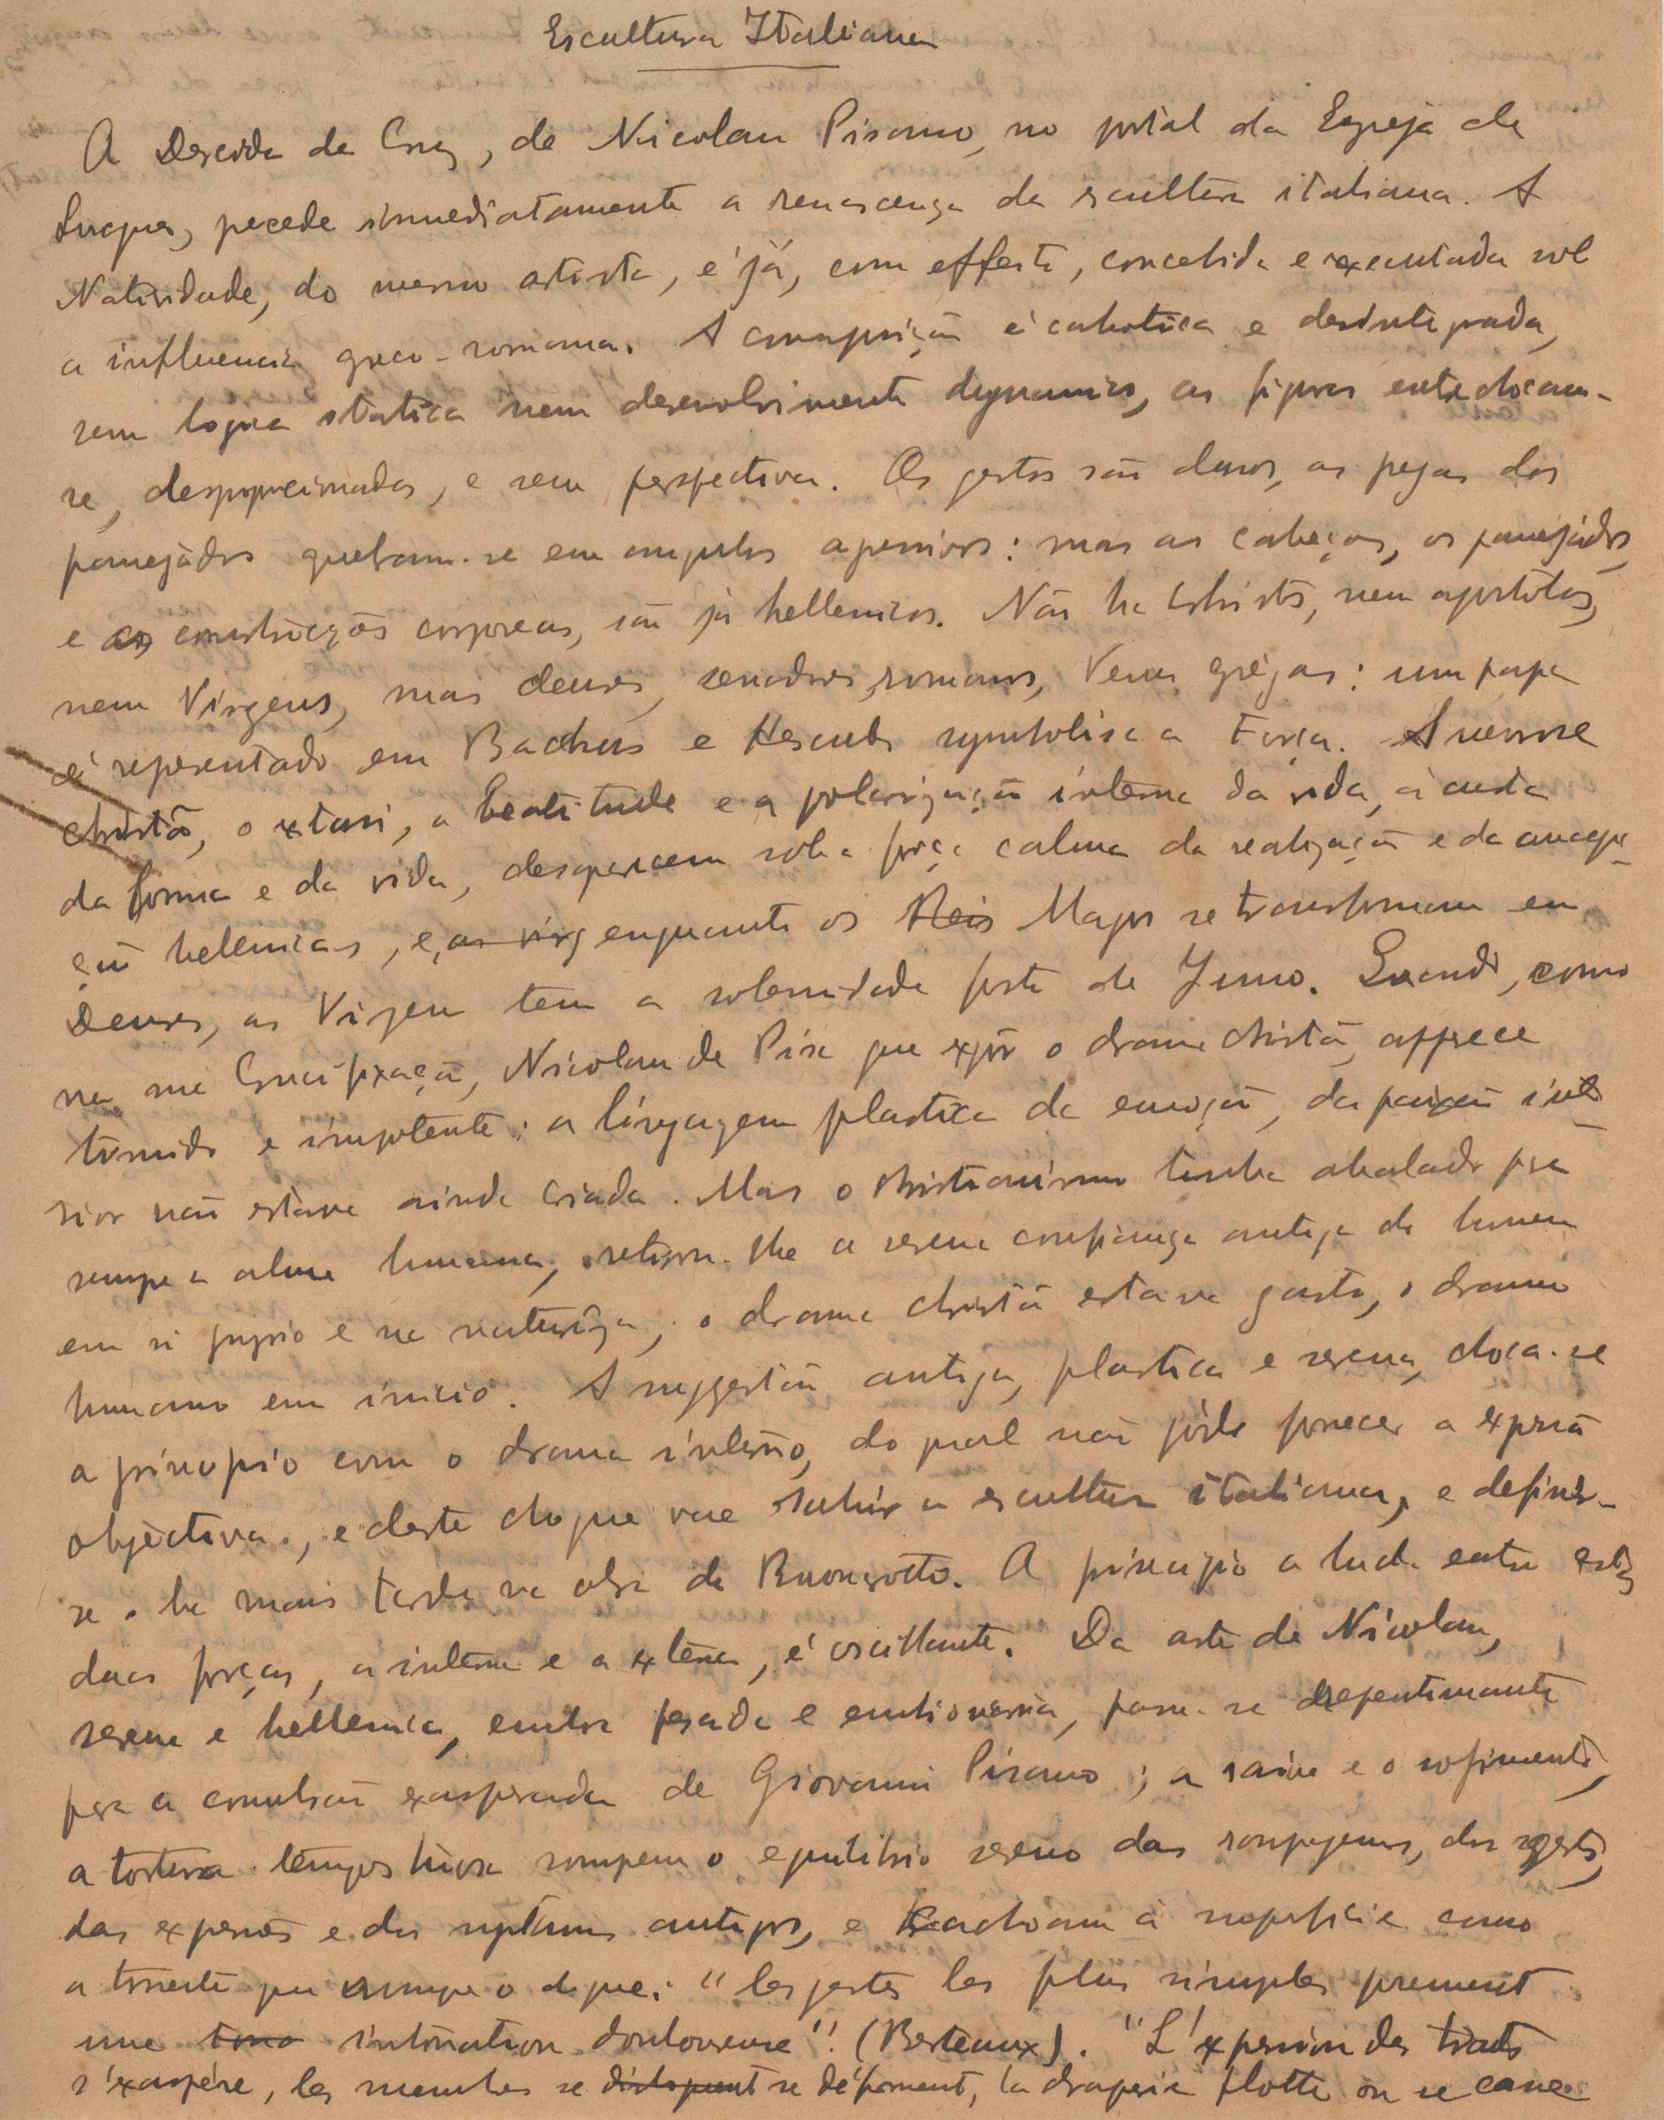 Escultura Italiana
A Descida da Cruz, de Nicolau Pisano, no portal da Egreja de
Lucques, precede immediatamente a renascença da escultura italiana. A
Natividade, do mesmo artista, é já, com effeito, concebida e executada sob
a influencia greco-romana. A composição é cahotica e desintegrada,
sem logica statica nem desenvolvimento dynamico, as figuras entrechocam-
se, desproporcionadas, e sem perspectiva. Os gestos são duros, as pregas dos
panejádos quebram-se em angulos : mas as cabeças, os panejádos,
e as construcções corporeas, são já hellenicas. Não ha Christos, nem apostolos,
nem Virgens, mas deuses, senadores romanos, Venus grégas: um papa
é representado em Bacchus e Hercules symbolisa a Força. A
christã, o extasi, a beatitude e a polarização interna da vida, á custa
da forma e da vida, desaparecem sob a força calma da realização e da concep-
ção helenicas, e, as virg enquanto os Reis Magos se transformam em
Deuses, as Virgem tem a solemnidade forte de Juno. Quando, como
na sua Crucifixação, Nicolau de Pisa quer expôr o drama christão, apparece
timido e impotente: a linguagem plastica da emoção, da paixão inte-
rior não estava ainda criada. Mas o christianismo tinha abalado para
sempre a alma humana, retirára-lhe a serena confiança antiga do homem
em si proprio e na naturêza; o drama christão estava gasto, o drama
humano em inicio. A suggestão antiga, plastica e serena, choca-se
a principio com o drama interno, do qual não póde fornecer a expressão
objectiva, e deste choque vae sahir a escultura italiana, e definir-
se-ha mais tarde na obra de Buonarotto. A principio a lucta entre estas
duas forças, a interna e a externa, é oscillante. Da arte de Nicolau,
serena e hellenica, embora pesada e embrionaria, passa-se repentinamente
para a convulsão exasperada de Giovanni Pisano; a raiva e o sofrimento,
a tortura tempestuosa rompem o equilibrio sereno das roupagens, dos gestos,
das expressões e dos rythmos antigos, e cachoam á superficie como
a torrente que rompe o dique: "les gestes les plus simples prennent
une tono intonation douloureuse"! (Berteaux). "L'expression des traits
s'exaspére, les membres se disloquent se déforment, la draperie flotte ou se casse